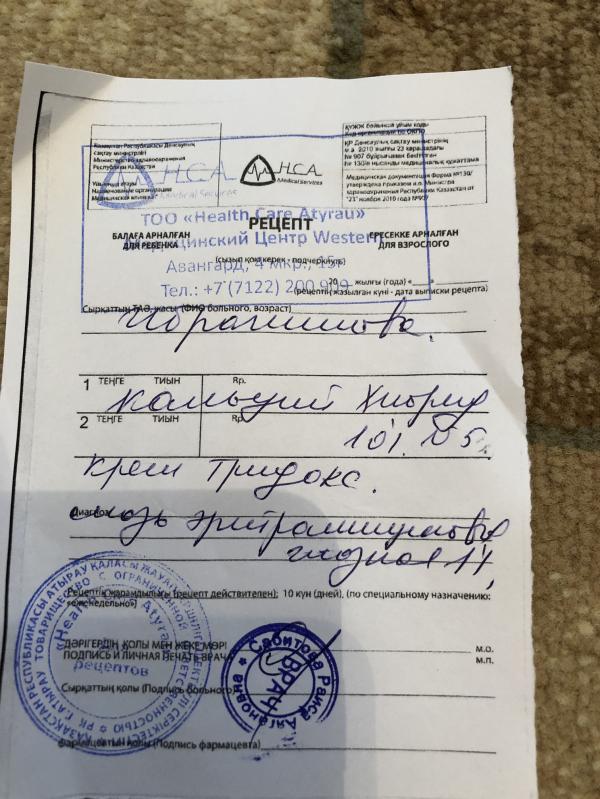 Қазақстан Республикасы Денсаулық
сақтау министрлігі
Министерство здравоохранения
Республики Казахстан
Ұйымның атауы
Наименование организации
Медициналық
ҚҰЖЖ бойынша ұйым коды
Код организации по ОКПО
ҚР Денсаулық сақтау министрінің
м.а 2010 жылғы 23 қарашадағы
№ 907 бұйрығымен бекітілген
№ 130/е нысанды медициналық құжаттама
Медицинская документация Форма №130/
утверждена приказом и.о. Министра
здравоохранения Республики Казахстан от
"23" ноября 2010 года №907
H.C.A.
Medical Services
H.C.A.
Medical Services
ТОО «Health Care Atyrau»
Медицинский Центр Western
Авангард, 4 мкр., 15
Тел.: +7 (7122) 200 909
РЕЦЕПТ
БАЛАҒА АРНАЛҒАН
ДЛЯ РЕБЕНКА
ЕРЕСЕККЕ АРНАЛҒАН
ДЛЯ ВЗРОСЛОГО
(сызып қою керек - подчеркнуть)
20 жылғы (года) «
(рецептің жазылған күні - дата выписки рецепта)
Сырқаттың ТАӘ, жасы (ФИО больного, возраст)
Ибрагимова.
1 ТЕҢГЕ ТИЫН Rp.
Кальций Хлорид
2 ТЕҢГЕ ТИЫН Rp.
10% N 5
Крем Тридокс.
Диагноз
мазь эритромициновая
глазная 1%
Рецептің жарамдылығы (рецепт действителен): 10 күн (дней), (по специальному назначению:
еженедельно»)
ДӘРІГЕРДІҢ ҚОЛЫ МЕН ЖЕКЕ МӨРІ
ПОДПИСЬ И ЛИЧНАЯ ПЕЧАТЬ ВРАЧА
М.О.
М.П.
Сырқаттың қолы (Подпись больного)
Фармацевтың қолы (Подпись фармацевта)
«Health Care Atyrau»
рецептов
Сабитова Раиса Аягановна
ВРАЧ